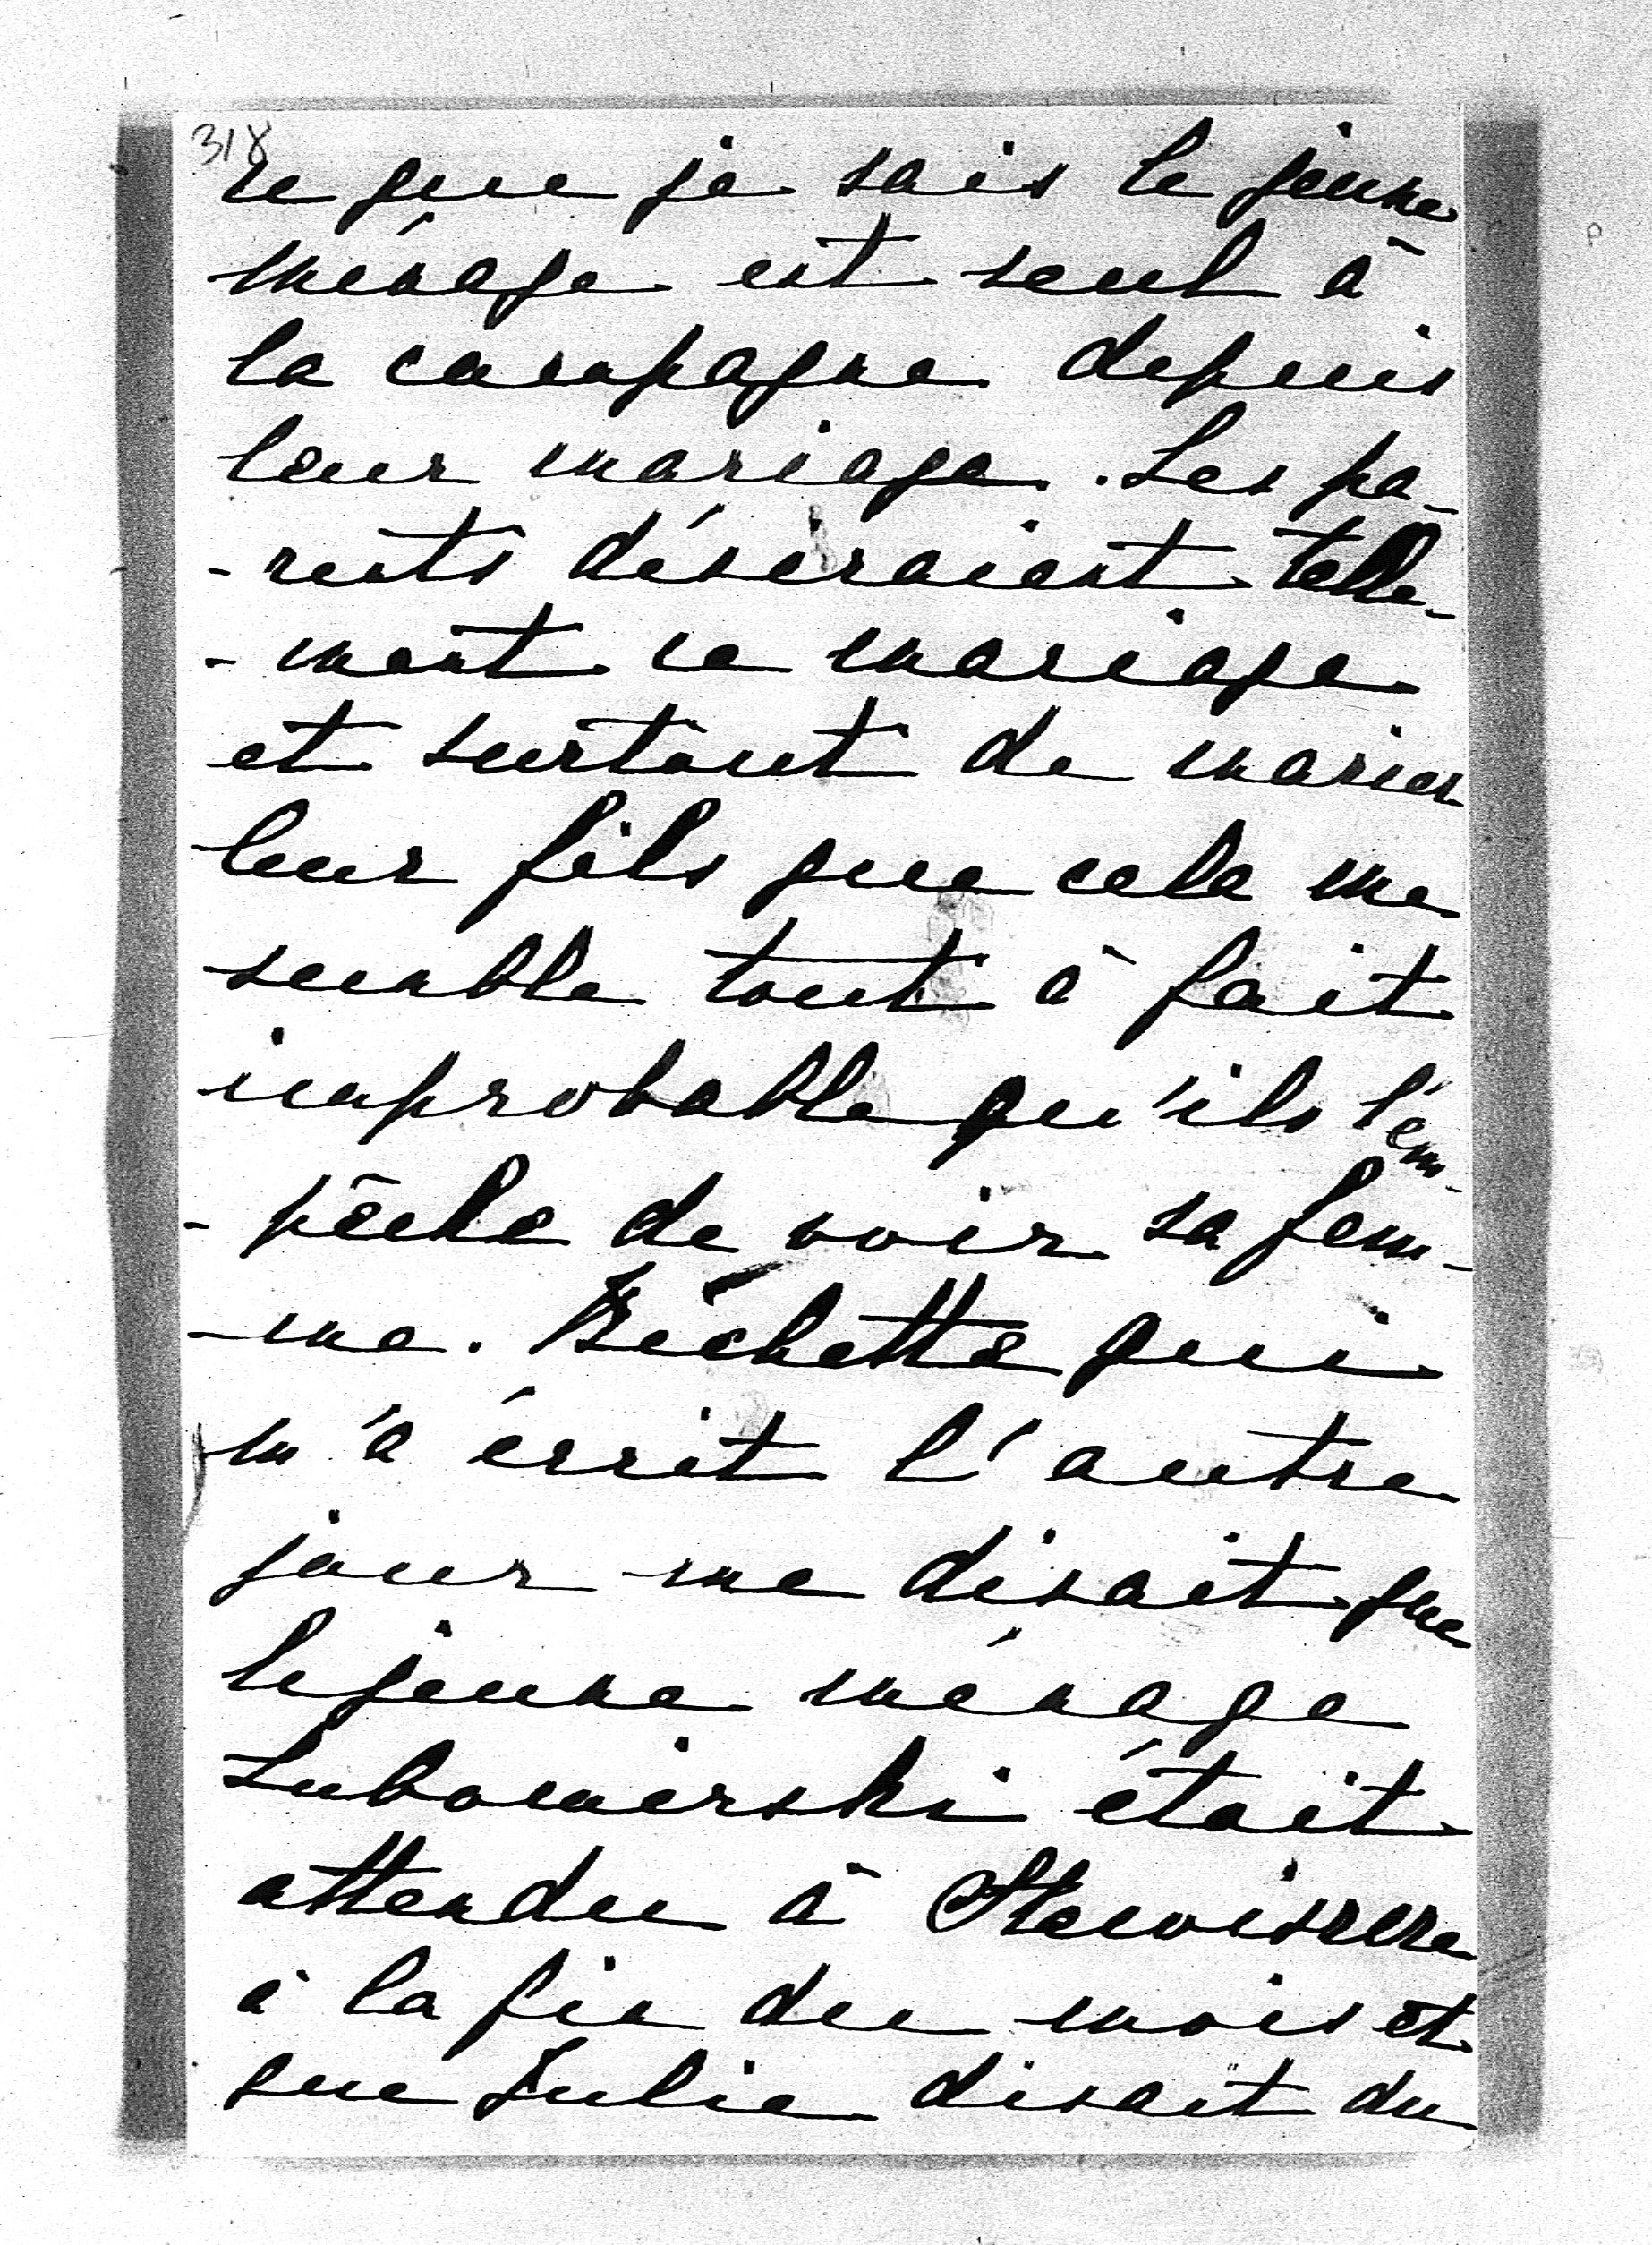 318
ce que je sais le jeune
ménage est seul à
la campagne depuis
leur mariage. Les pa-
-rents désiraient telle-
-ment ce mariage
et surtout de marier
leur fils que cela me
semble tout à fait
improbable qu'ils l'em-
-pêche de voir sa fem-
-me. Bichette qui
m'a écrit l'autre
jour me disait que
le jeune ménage
Lubomirski était
attendu à
à la fin du mois et
que Julie disait du